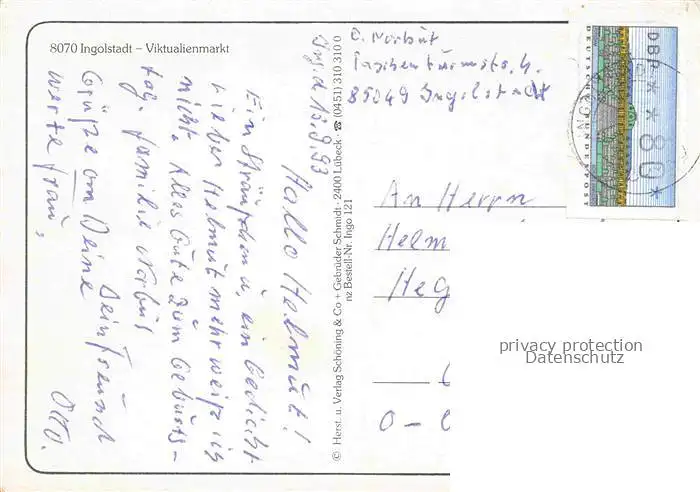 8070 Ingolstadt – Viktualienmarkt
Ing.d 15.9.93
Hallo Helmut!
Ein Sträußchen u, ein Gedicht
Lieber Helmut mehr weiß ich
nicht. Alles Gute zum Geburts-
tag. Familie
Grüße an Deine Dein Freund
werte Frau, Otto.
© Herst. u. Verlag Schöning & Co + Gebrüder Schmidt · 2400 Lübeck · ☎ (0451) 310 310 0
nz Bestell-Nr. Ingo 121
O.
85049 Ingolstadt
DEUTSCHE BUNDESPOST
DBP
* * 80 *
An Herrn
Helm
Heg
O –
privacy protection
Datenschutz